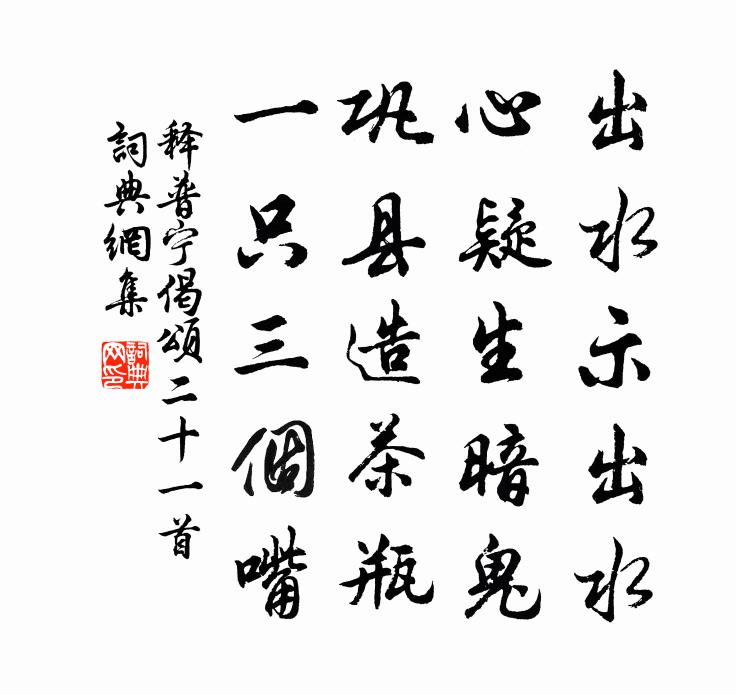 出水示出水
心疑生暗鬼
巩县造茶瓶
一只三個嘴
释普宁偈頌二十一首
詞典網集
詞典網印